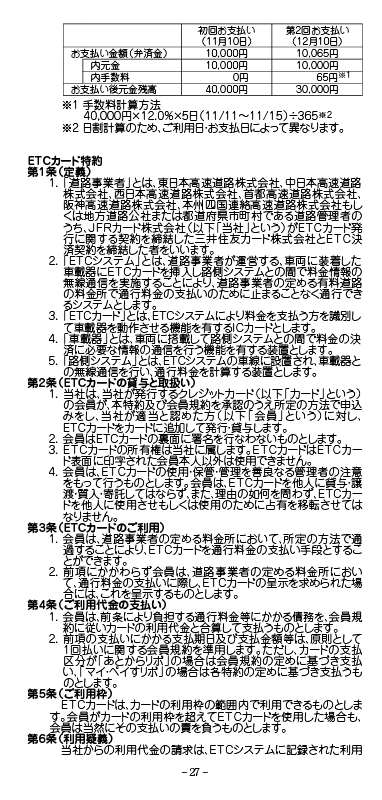 初回お支払い 第2回お支払い
(11月10日) (12月10日)
お支払い金額(弁済金) 10,000円 10,065円
内元金 10,000円 10,000円
内手数料 0円 65円※1
お支払い後元金残高 40,000円 30,000円
※1 手数料計算方法
40,000円×12.0%×5日(11/11〜11/15)÷365※2
※2 日割計算のため、ご利用日・お支払日によって異なります。
ETCカード特約
第1条(定義)
1. 「道路事業者」とは、東日本高速道路株式会社、中日本高速道路
株式会社、西日本高速道路株式会社、首都高速道路株式会社、
阪神高速道路株式会社、本州四国連絡高速道路株式会社もし
くは地方道路公社または都道府県市町村である道路管理者の
うち、JFRカード株式会社(以下「当社」という)がETCカード発
行に関する契約を締結した三井住友カード株式会社とETC決
済契約を締結した者をいいます。
2. 「ETCシステム」とは、道路事業者が運営する、車両に装着した
車載器にETCカードを挿入し路側システムとの間で料金情報の
無線通信を実施することにより、道路事業者の定める有料道路
の料金所で通行料金の支払いのために止まることなく通行でき
るシステムとします。
3. 「ETCカード」とは、ETCシステムにより料金を支払う方を識別し
て車載器を動作させる機能を有するICカードとします。
4. 「車載器」とは、車両に搭載して路側システムとの間で料金の決
済に必要な情報の通信を行う機能を有する装置とします。
5. 「路側システム」とは、ETCシステムの車線に設置され、車載器と
の無線通信を行い、通行料金を計算する装置とします。
第2条(ETCカードの貸与と取扱い)
1. 当社は、当社が発行するクレジットカード(以下「カード」という)
の会員が、本特約及び会員規約を承認のうえ所定の方法で申込
みをし、当社が適当と認めた方(以下「会員」という)に対し、
ETCカードをカードに追加して発行・貸与します。
2. 会員はETCカードの裏面に署名を行なわないものとします。
3. ETCカードの所有権は当社に属します。ETCカードはETCカー
ド表面に印字された会員本人以外は使用できません。
4. 会員は、ETCカードの使用・保管・管理を善良なる管理者の注意
をもって行うものとします。会員は、ETCカードを他人に貸与・譲
渡・質入・寄託してはならず、また、理由の如何を問わず、ETCカー
ドを他人に使用させもしくは使用のために占有を移転させては
なりません。
第3条(ETCカードのご利用)
1. 会員は、道路事業者の定める料金所において、所定の方法で通
過することにより、ETCカードを通行料金の支払い手段とするこ
とができます。
2. 前項にかかわらず会員は、道路事業者の定める料金所におい
て、通行料金の支払いに際し、ETCカードの呈示を求められた場
合には、これを呈示するものとします。
第4条(ご利用代金の支払い)
1. 会員は、前条により負担する通行料金等にかかる債務を、会員規
約に従いカードの利用代金と合算して支払うものとします。
2. 前項の支払いにかかる支払期日及び支払金額等は、原則として
1回払いに関する会員規約を準用します。ただし、カードの支払
区分が「あとからリボ」の場合は会員規約の定めに基づき支払
い、「マイ・ペイすリボ」の場合は各特約の定めに基づき支払うも
のとします。
第5条(ご利用枠)
ETCカードは、カードの利用枠の範囲内で利用できるものとしま
す。会員がカードの利用枠を超えてETCカードを使用した場合も、
会員は当然にその支払いの責を負うものとします。
第6条(利用疑義)
当社からの利用代金の請求は、ETCシステムに記録された利用
- 27 -